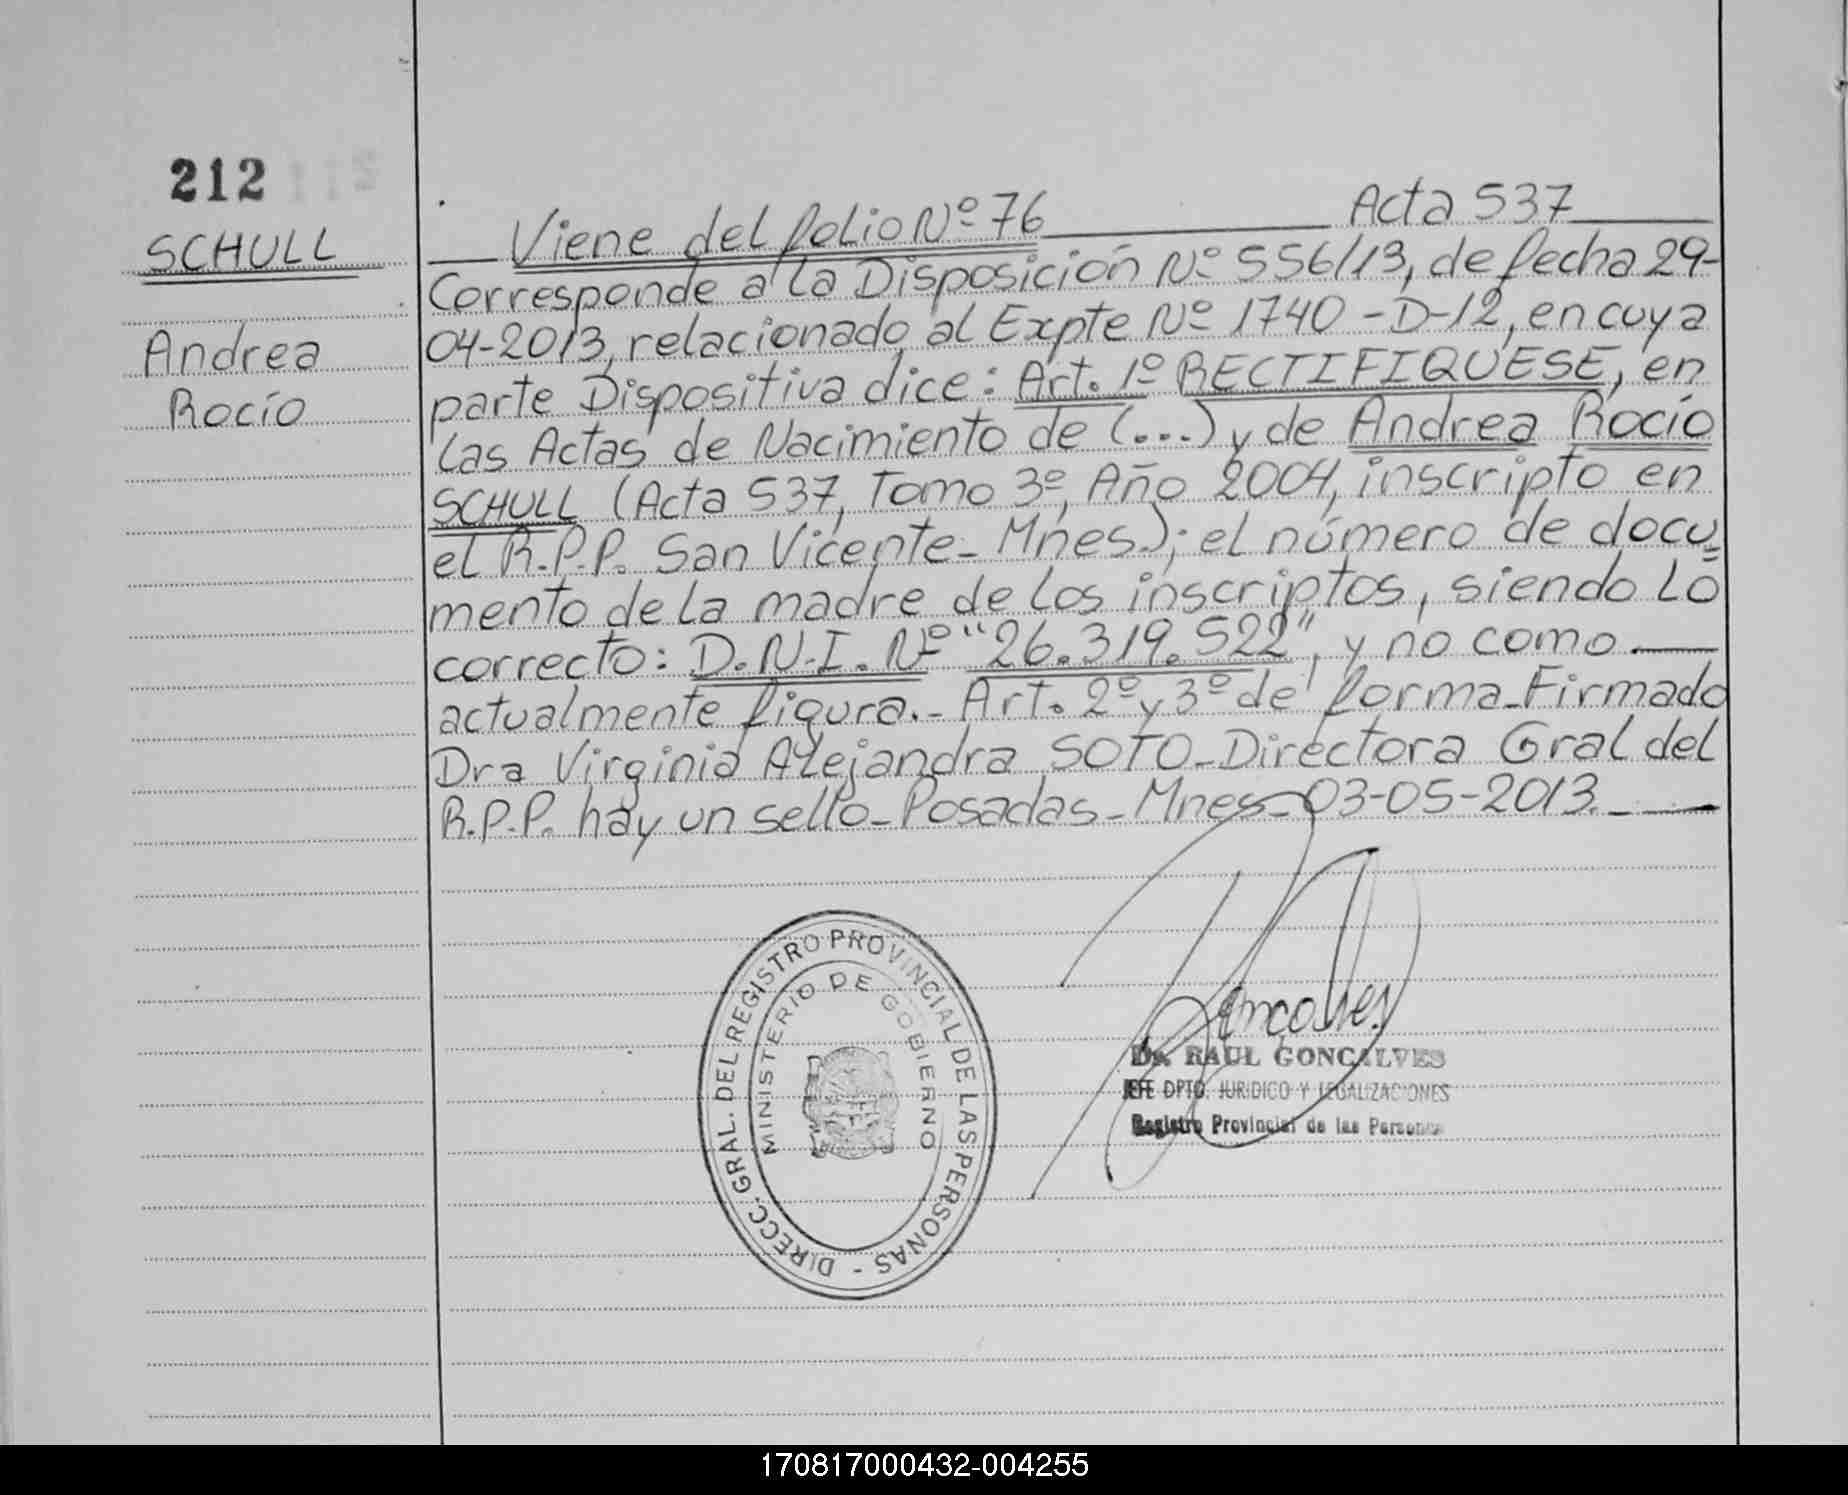 212
SCHULL
Andrea
Rocío
Viene del folio Nº 76 Acta 537
Corresponde a la Disposición Nº 556/13, de fecha 29-
04-2013, relacionado al Expte Nº 1740-D-12, en cuya
parte Dispositiva dice: Art. 1º RECTIFIQUESE, en
las Actas de Nacimiento de (...) y de Andrea Rocío
SCHULL (Acta 537, Tomo 3º, Año 2004, inscripto en
el R.P.P. San Vicente-Mnes.); el número de docu-
mento de la madre de los inscriptos, siendo lo
correcto: D.N.I. Nº "26.319.522", y no como
actualmente figura.- Art. 2º y 3º de forma-Firmado
Dra Virginia Alejandra SOTO-Directora Gral del
R.P.P. hay un sello-Posadas-Mnes-03-05-2013.-
DIRECC. GRAL. DEL REGISTRO PROVINCIAL DE LAS PERSONAS -
MINISTERIO DE GOBIERNO
Goncalves
Dr. RAUL GONCALVES
JEFE DPTO. JURIDICO Y LEGALIZACIONES
Registro Provincial de las Personas
170817000432-004255